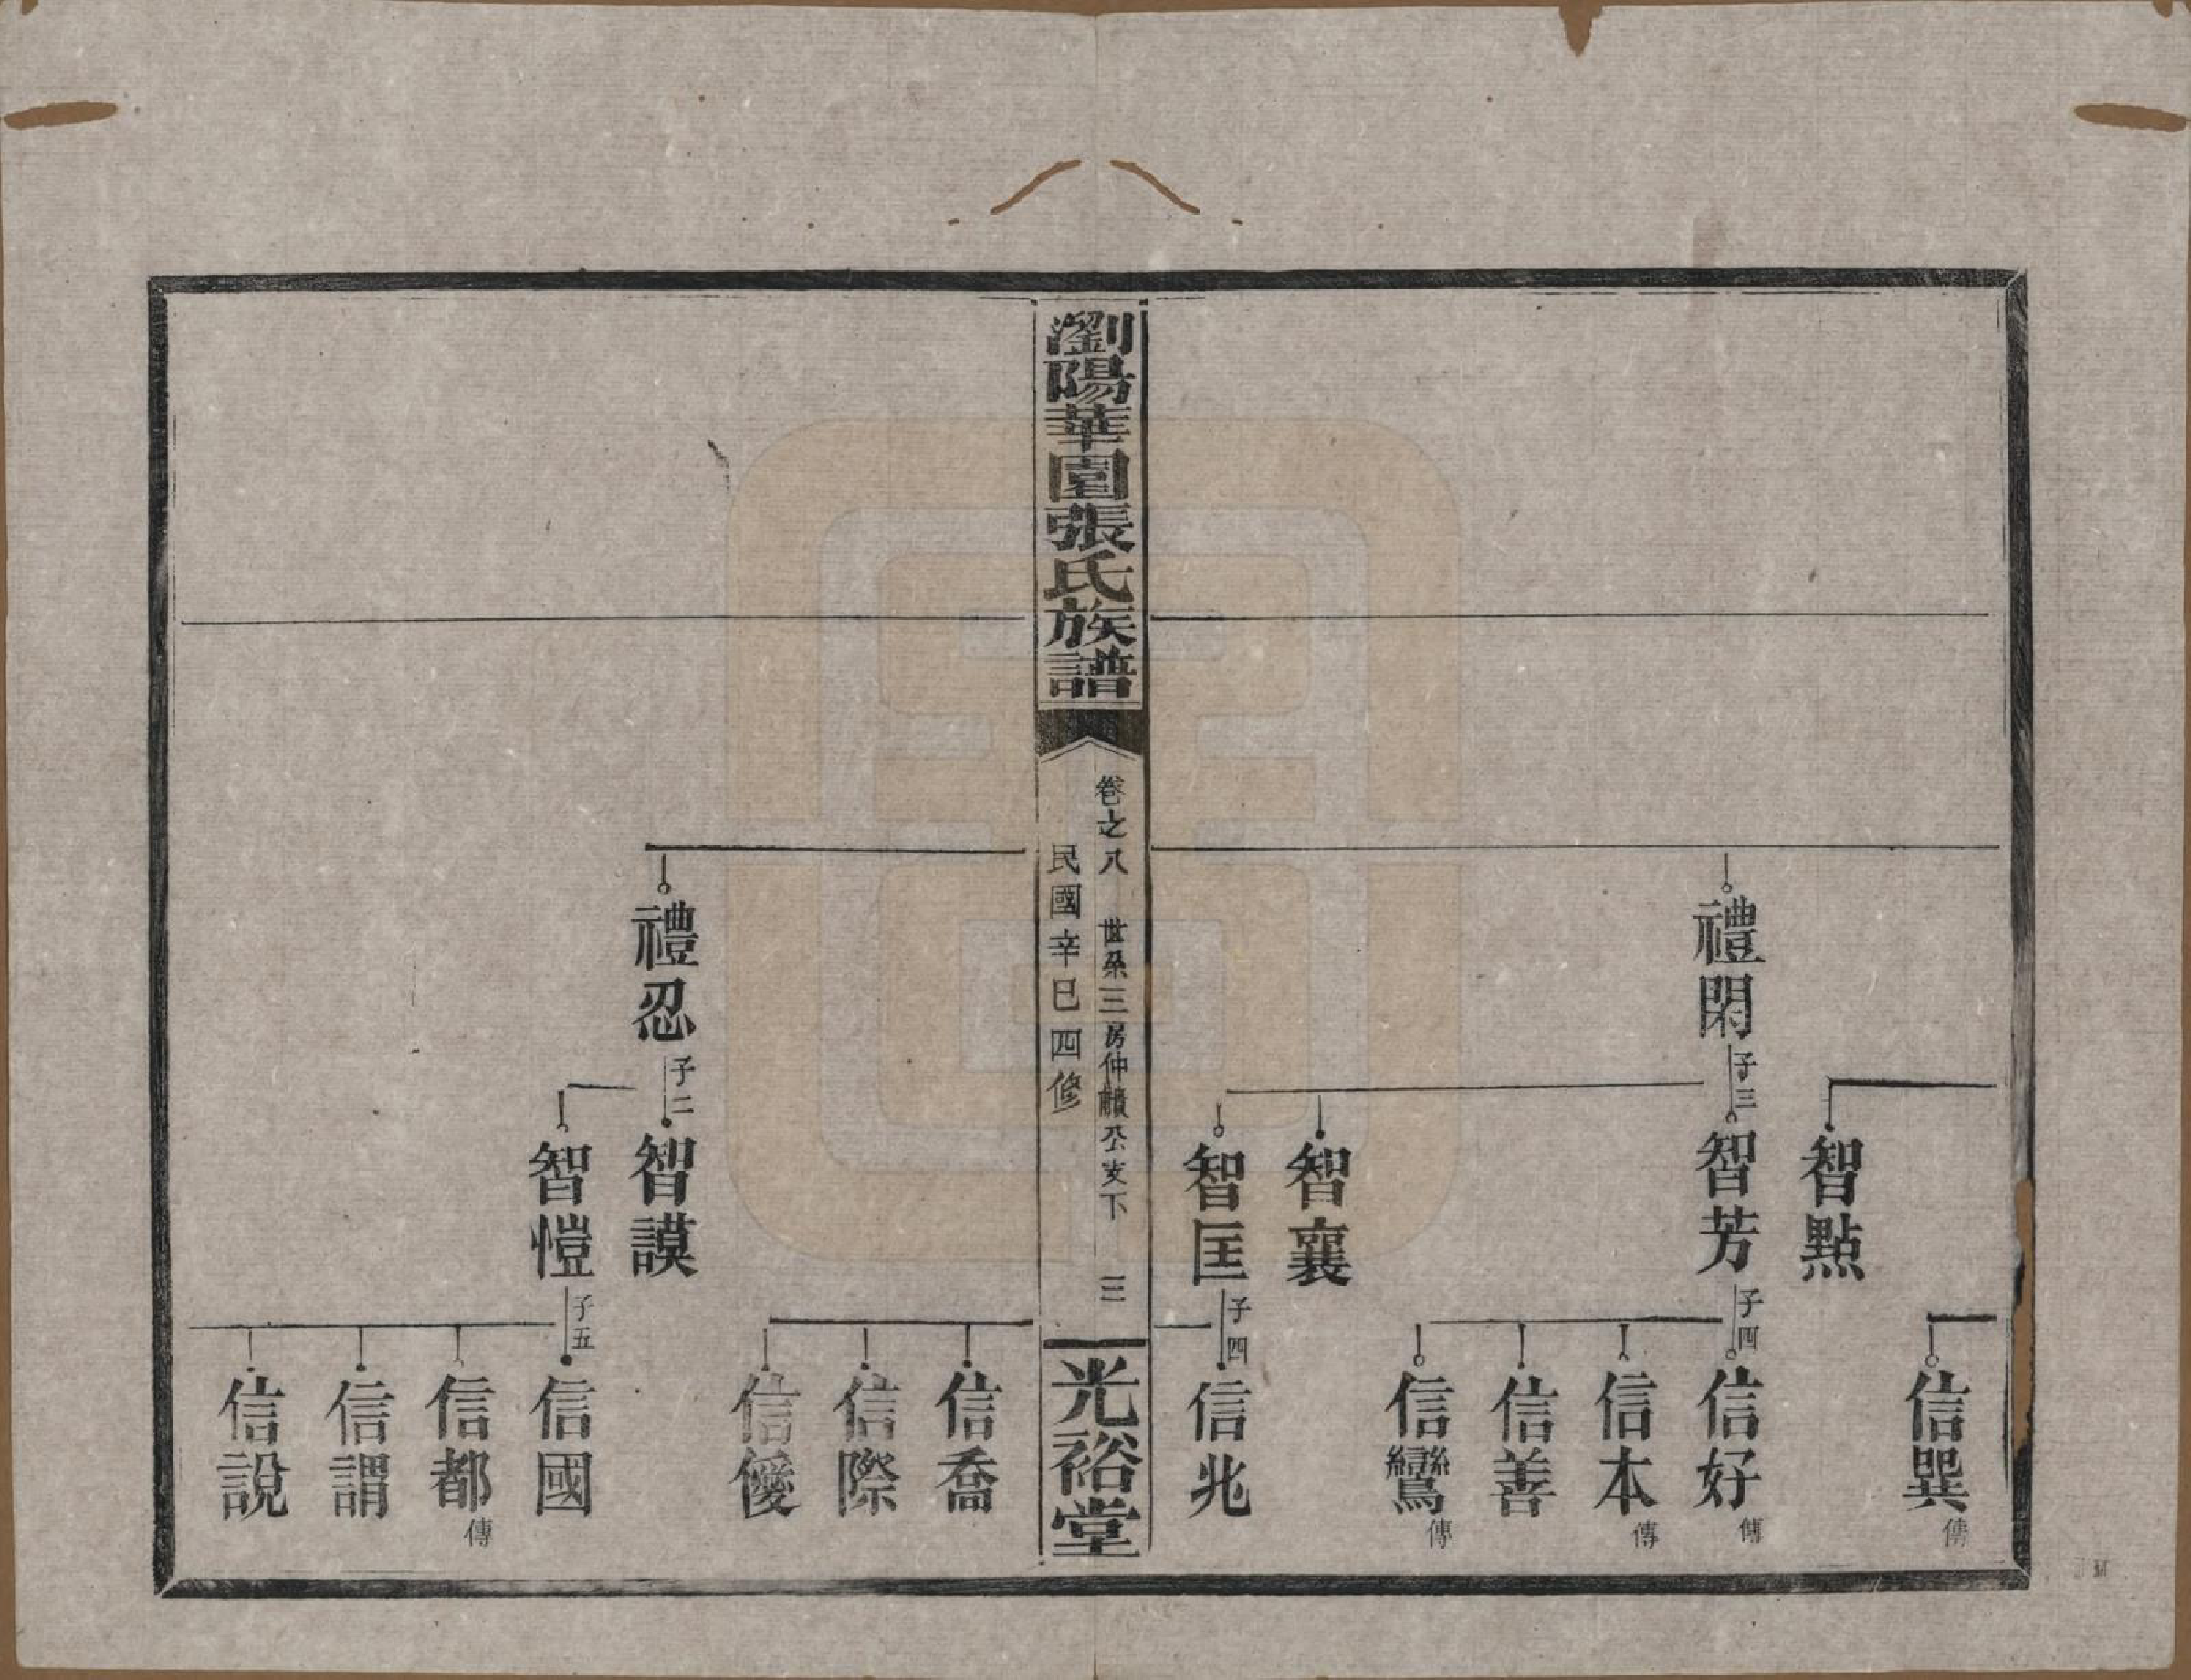 信巽傳
智點
禮閑子三
智芳子四
信好傳
信本傳
信善
信鸞傳
智襄
智匡子四
信兆
瀏陽華園張氏族譜
卷之八 世系三房仲馥公支下 三
民國辛巳四修
光裕堂
信喬
信際
信優
禮忍子二
智謨
智愷子五
信國
信都傳
信謂
信說